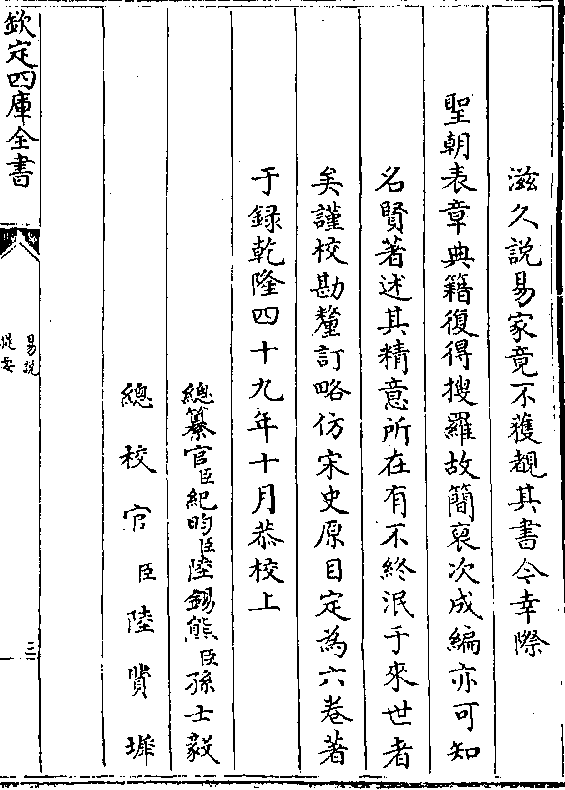 滋久說易家竟不獲覩其書今幸際
聖朝表章典籍復得搜羅故簡裒次成編亦可知
名賢著述其精意所在有不終泯于來世者
矣謹校勘釐訂略仿宋史原目定為六卷著
于録乾隆四十九年十月恭校上
總纂官臣紀昀臣陸錫熊臣孫士毅
總校官臣陸費墀
欽定四庫全書
易說
提要
三